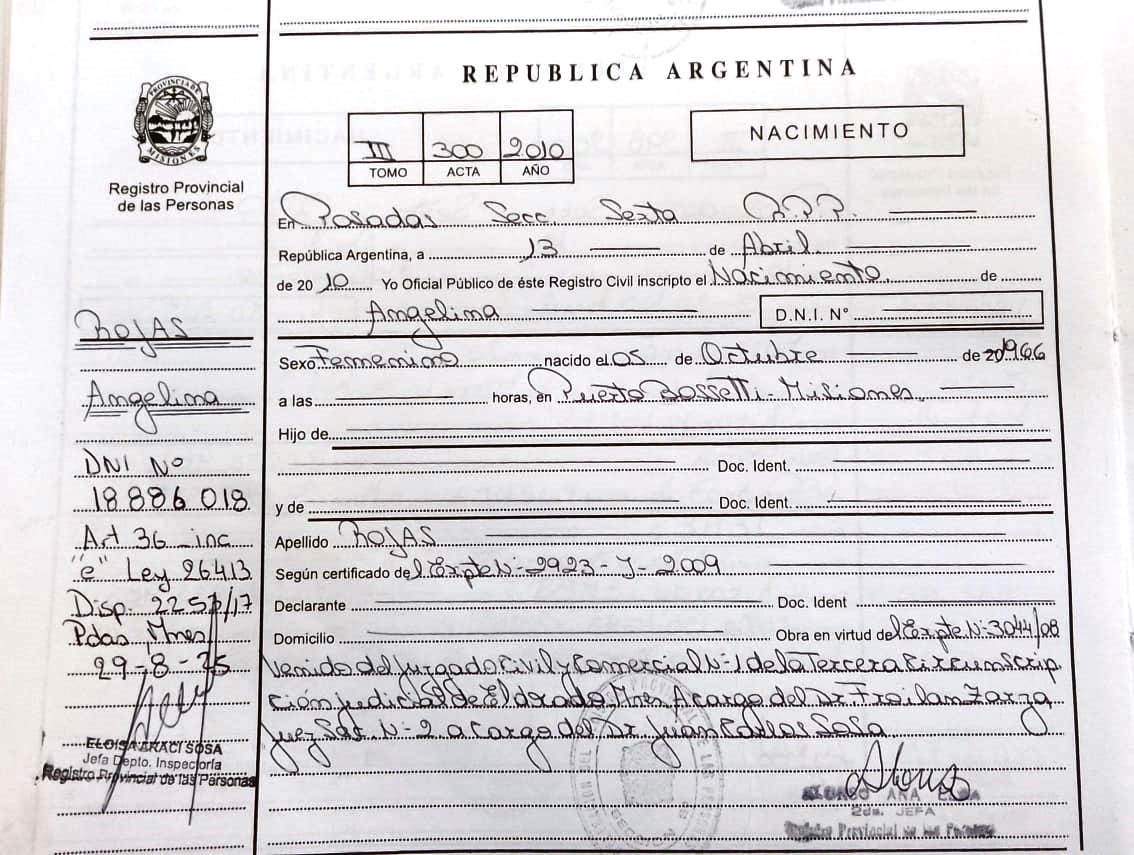 REPUBLICA ARGENTINA
PROVINCIA DE MISIONES
Registro Provincial
de las Personas
III 300 2010
TOMO ACTA AÑO
NACIMIENTO
En Posadas Secc. Sexta R.P.P.
República Argentina, a 13 de Abril
de 2010 Yo Oficial Público de éste Registro Civil inscripto el Nacimiento de
Angelina D.N.I. N°
Sexo Femenino nacido el 05 de Octubre de 20 1966
a las horas, en Puerto Bossetti-Misiones.
Hijo de
Doc. Ident.
y de Doc. Ident.
Apellido ROJAS
Según certificado del Expte N- 2923-J-2009
Declarante Doc. Ident
Domicilio Obra en virtud del Expte N-3044/08
Venido del Juzgado Civil y Comercial N-1 de la Tercera Circunscrip
ción judicial de Eldorado, Mnes. A cargo del Dr. Froilan Zarza
juez, N-2 a cargo del Dr. Juan Carlos Sosa
ROJAS
Angelina
DNI No
18886018
Art 36 inc
"e" Ley 26413
Disp. 2257/17
Pdas Mnes
29-8-25
ELOISA ARACI SOSA
Jefa Depto. Inspectoría
Registro Provincial de las Personas
ALONSO ANA ELBA
2da. JEFA
Registro Provincial de las Personas